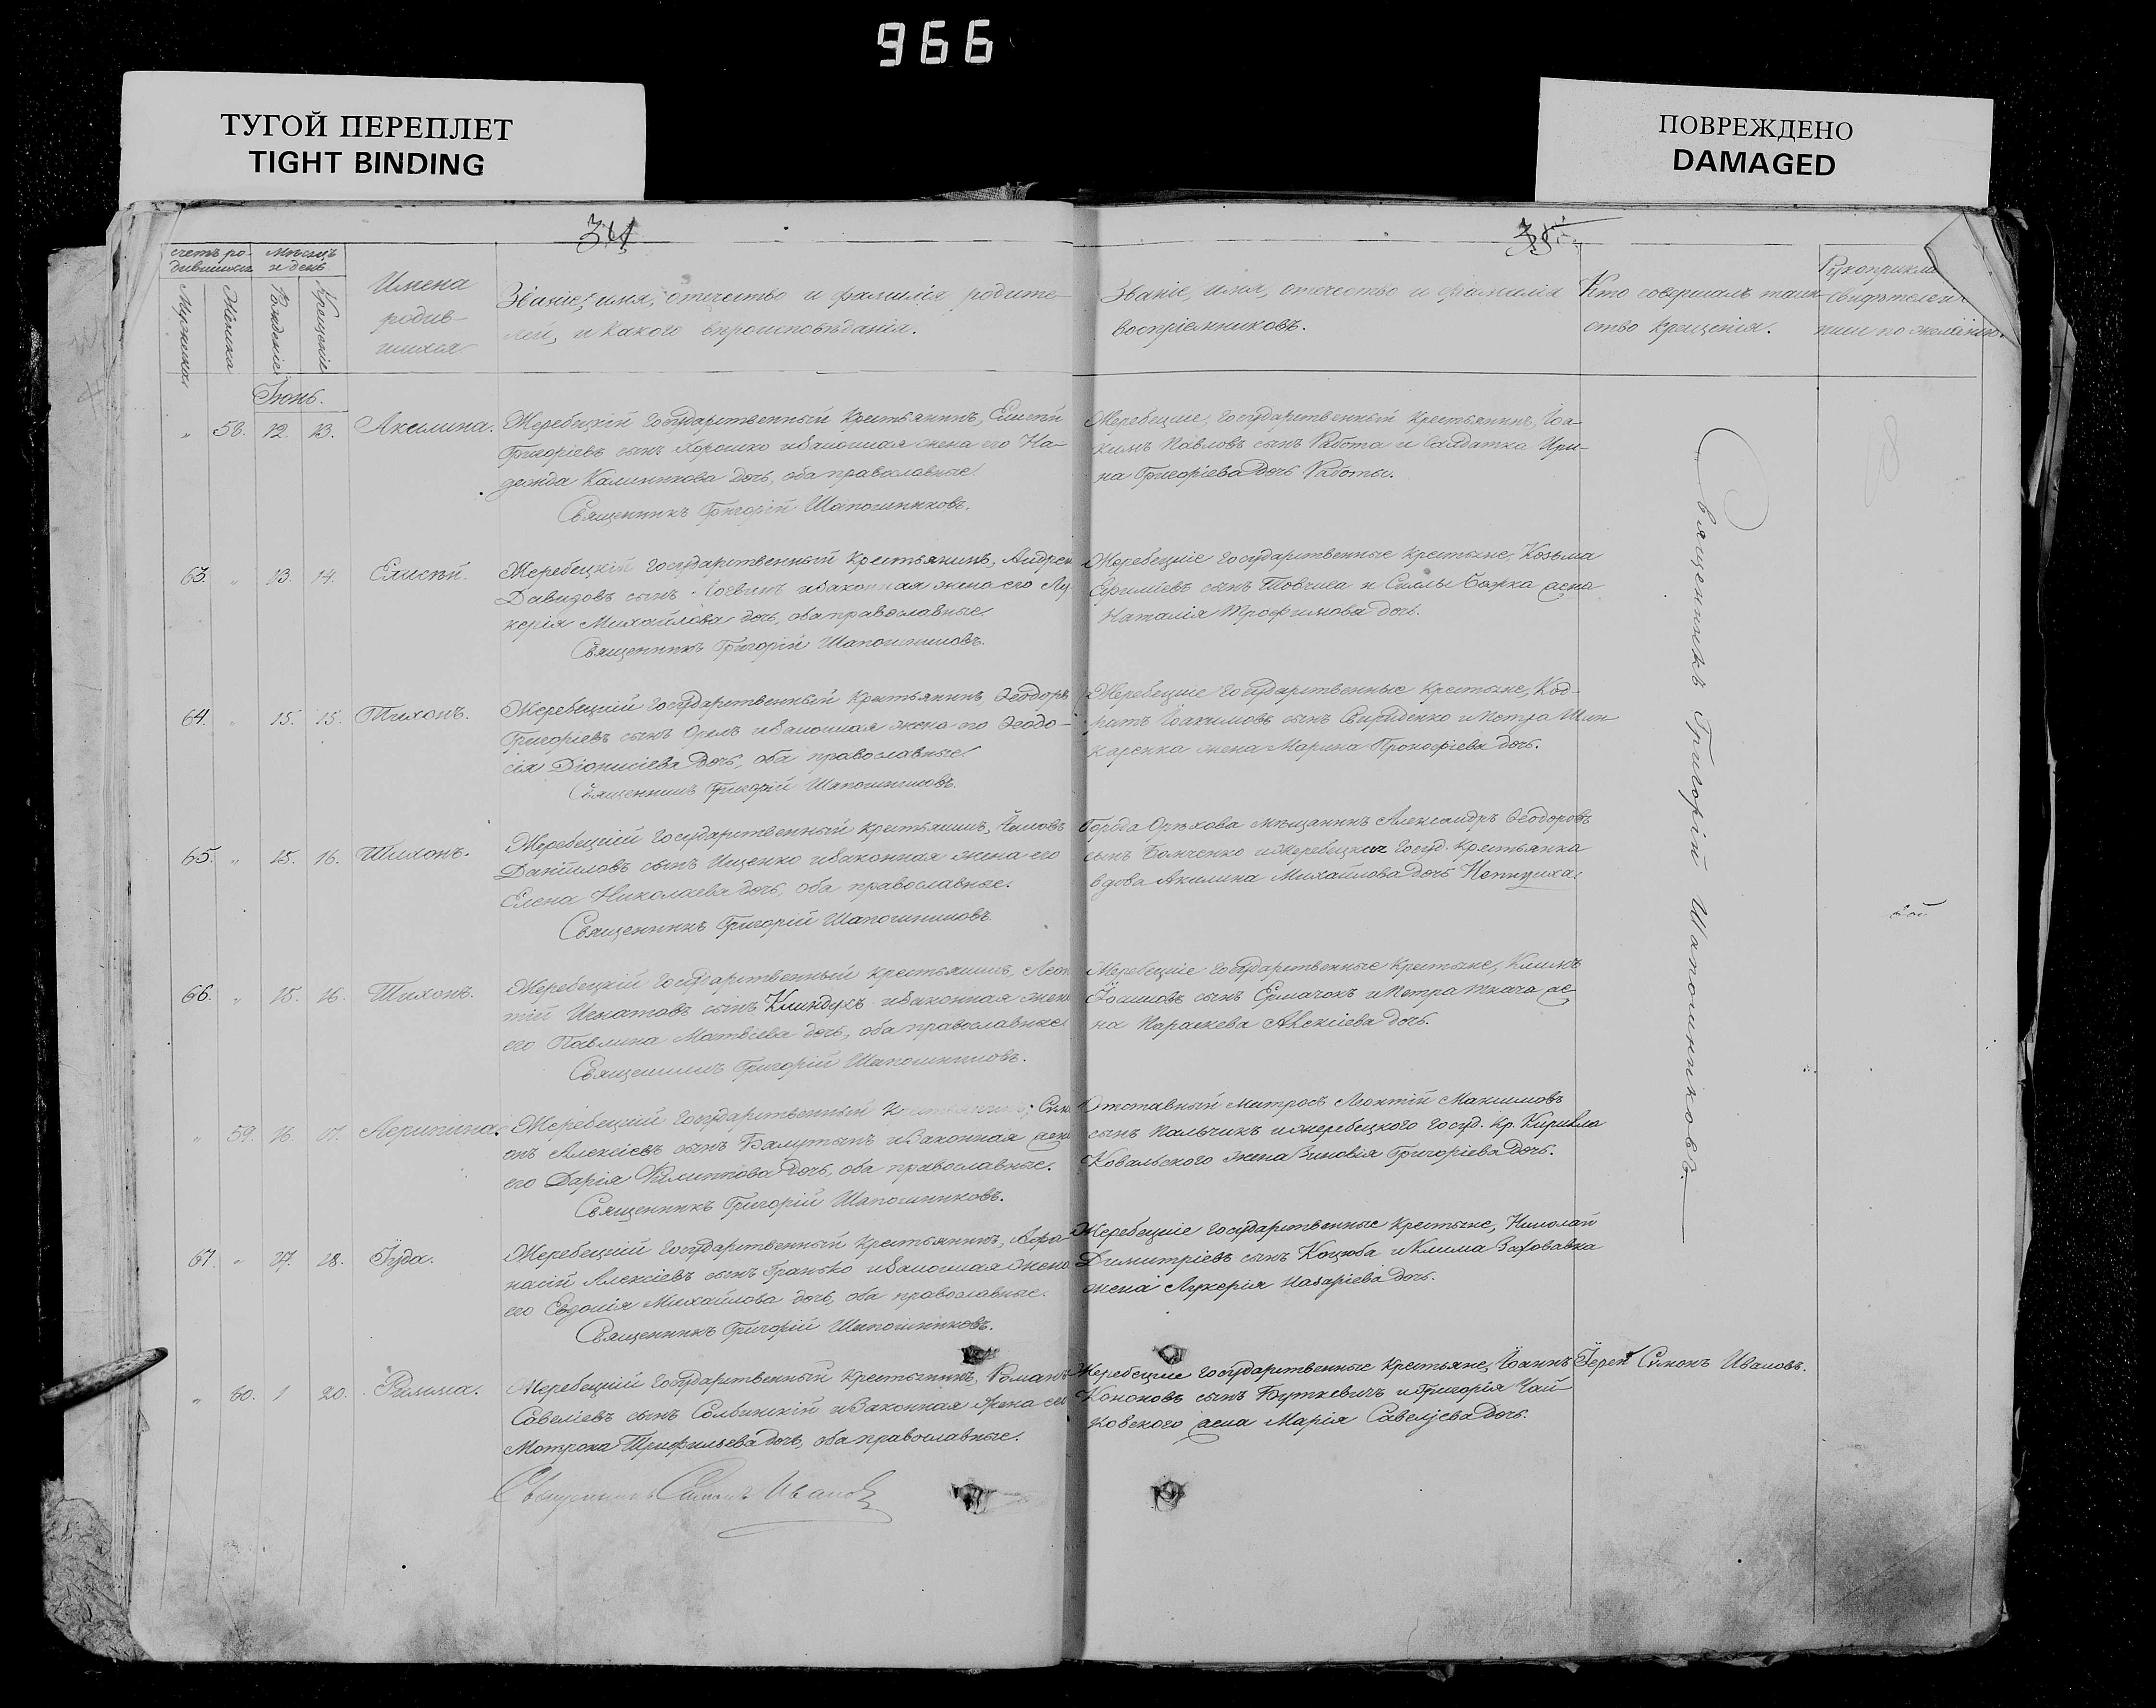 966
ТУГОЙ ПЕРЕПЛЕТ
TIGHT BINDING
ПОВРЕЖДЕНО
DAMAGED
счетъ ро-
дившихся
мѣсяцъ
и день
Мужеска
Женска
Рожденіе
Крещеніе
Имена
родив-
шихся.
Званіе, имя, отчество и фамилія родите-
лей, и какого вѣроисповѣданія.
Званіе, имя, отчество и фамилія
воспріемниковъ.
Кто совершалъ таин-
ство крещенія.
Рукоприкла
свидѣтелей
писи по желанію.
Іюнь.
„ 58. 12. 13. Акилина. Жеребецкій государственный крестьянинъ, Елисѣй
Григоріевъ сынъ Хорошко и законная жена его На-
дежда Калиникова дочь, оба православные.
Священникъ Григорій Шапошниковъ.
Жеребецкіе, государственный крестьянинъ, Іоа-
кимъ Павловъ сынъ Работа и солдатка Ири-
на Григоріева дочь Работы.
63. „ 13. 14. Елисѣй. Жеребецкій государственный крестьянинъ, Андрей
Давидовъ сынъ и законная жена его Лу-
керія Михайлова дочь, оба православные.
Священникъ Григорій Шапошниковъ.
Жеребецкіе государственные крестьяне, Козьма
сынъ Товчига и Силы Божка жена
Наталія Трофимова дочь.
64. „ 15. 15. Тихонъ. Жеребецкій государственный крестьянинъ, Ѳеодоръ
Григоріевъ сынъ Орелъ и законная жена его Ѳеодо-
сія Діонисіева дочь, оба православные.
Священникъ Григорій Шапошниковъ.
Жеребецкіе государственные крестьяне, Код-
ратъ Іоакимовъ сынъ Свириденко и Петра Шин-
каренка жена Марина Прокофіева дочь.
65. „ 15. 16. Тихонъ. Жеребецкій государственный крестьянинъ, Іаковъ
Даніиловъ сынъ Ищенко и законная жена его
Елена Николаева дочь, оба православные.
Священникъ Григорій Шапошниковъ.
Города Орѣхова мѣщанинъ Александръ Ѳеодоровъ
сынъ и жеребецкая госуд. крестьянка
вдова Акилина Михайлова дочь
66. „ 15. 16. Тихонъ. Жеребецкій государственный крестьянинъ, Леон-
тій Игнатовъ сынъ Климдухъ и законная жена
его Павлина Матвіева дочь, оба православные.
Священникъ Григорій Шапошниковъ.
Жеребецкіе государственные крестьяне, Климъ
сынъ Ермачокъ и Петра Ткача же-
на Параскева Алексіева дочь.
„ 59. 16. 17. Агрипина. Жеребецкій государственный крестьянинъ, Сим-
онъ Алексіевъ сынъ и законная жена
его Дарія Филиппова дочь, оба православные.
Священникъ Григорій Шапошниковъ.
Отставный матросъ Леонтій Максимовъ
сынъ Пальчикъ и жеребецкого госуд. кр. Кирилла
Ковальского жена Зиновія Григоріева дочь.
67. „ 27. 28. Іуда. Жеребецкій государственный крестьянинъ, Афа-
насій Алексіевъ сынъ Гранько и законная жена
его Евдокія Михайлова дочь, оба православные.
Священникъ Григорій Шапошниковъ.
Жеребецкіе государственные крестьяне, Николай
Димитріевъ сынъ Коцюба и Клима
жена Лукерія Назаріева дочь.
„ 60. 1 20. Римма. Жеребецкій государственный крестьянинъ, Романъ
Савеліевъ сынъ Солбинскій и законная жена его
Матрона Трифильева дочь, оба православные.
Священникъ Симонъ Ивановъ
Жеребецкіе государственные крестьяне, Іоаннъ
Кононовъ сынъ Буткевичъ и Григорія Чай-
ковского жена Марія Савеліева дочь.
Іерей Симонъ Ивановъ.
Священникъ Григорій Шапошниковъ.